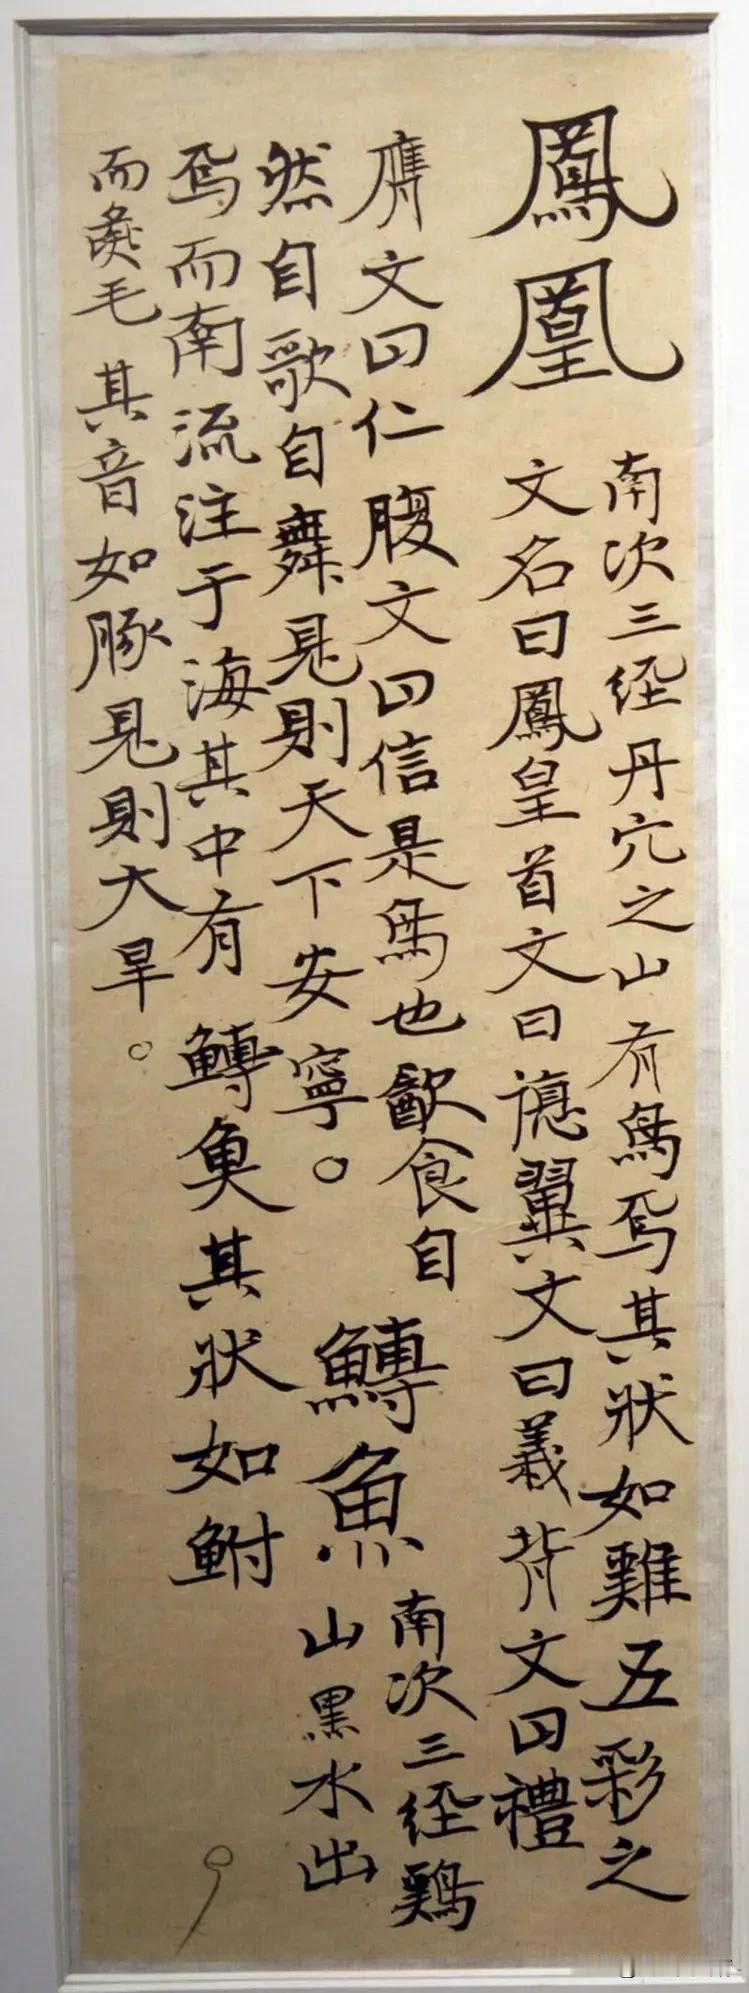 鳳凰
南次三经丹穴之山有鳥焉其狀如雞五彩之
文名曰鳳皇首文曰德翼文曰義背文曰禮
膺文曰仁腹文曰信是鳥也㱃食自
然自歌自舞見則天下安寧。
鱄魚
南次三经鷄
山黑水出
焉而南流注于海其中有鱄魚其狀如鮒
而彘毛其音如豚見則大旱。